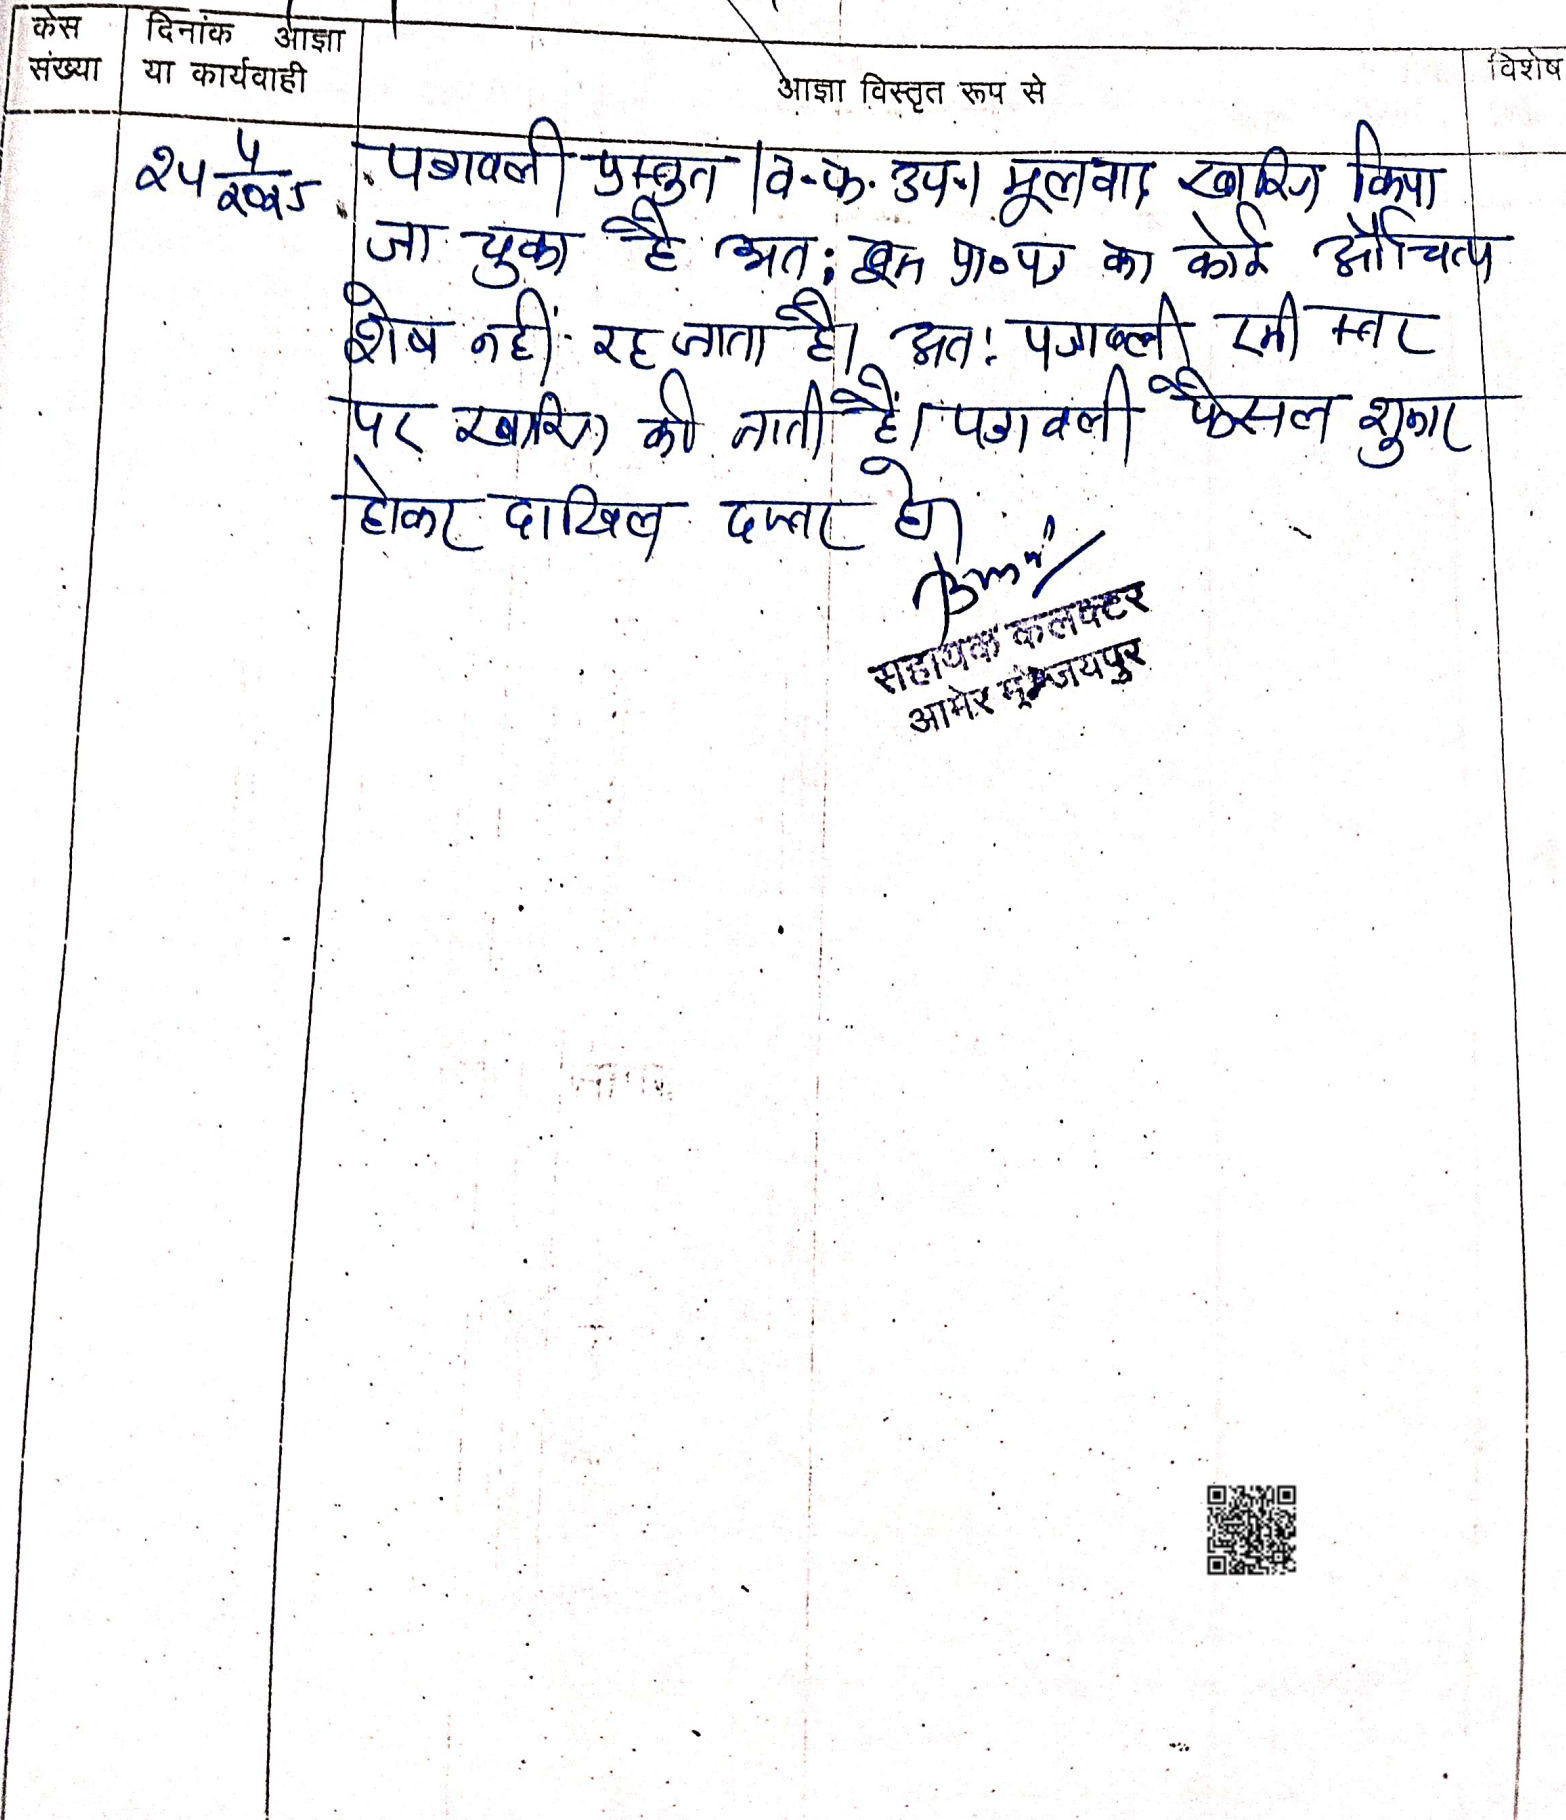 केस संख्या
दिनांक आज्ञा या कार्यवाही
आज्ञा विस्तृत रूप से
विशेष
पत्रावली प्रस्तुत। व.फ. उप.। मूलवाद खारिज किया
जा चुका है अतः इस प्रा०पत्र का कोई औचित्य
शेष नहीं रह जाता है। अतः पत्रावली इसी स्तर
पर खारिज की जाती है। पत्रावली फैसल शुमार
होकर दाखिल दफ्तर हो।
सहायक कलक्टर
आमेर जयपुर